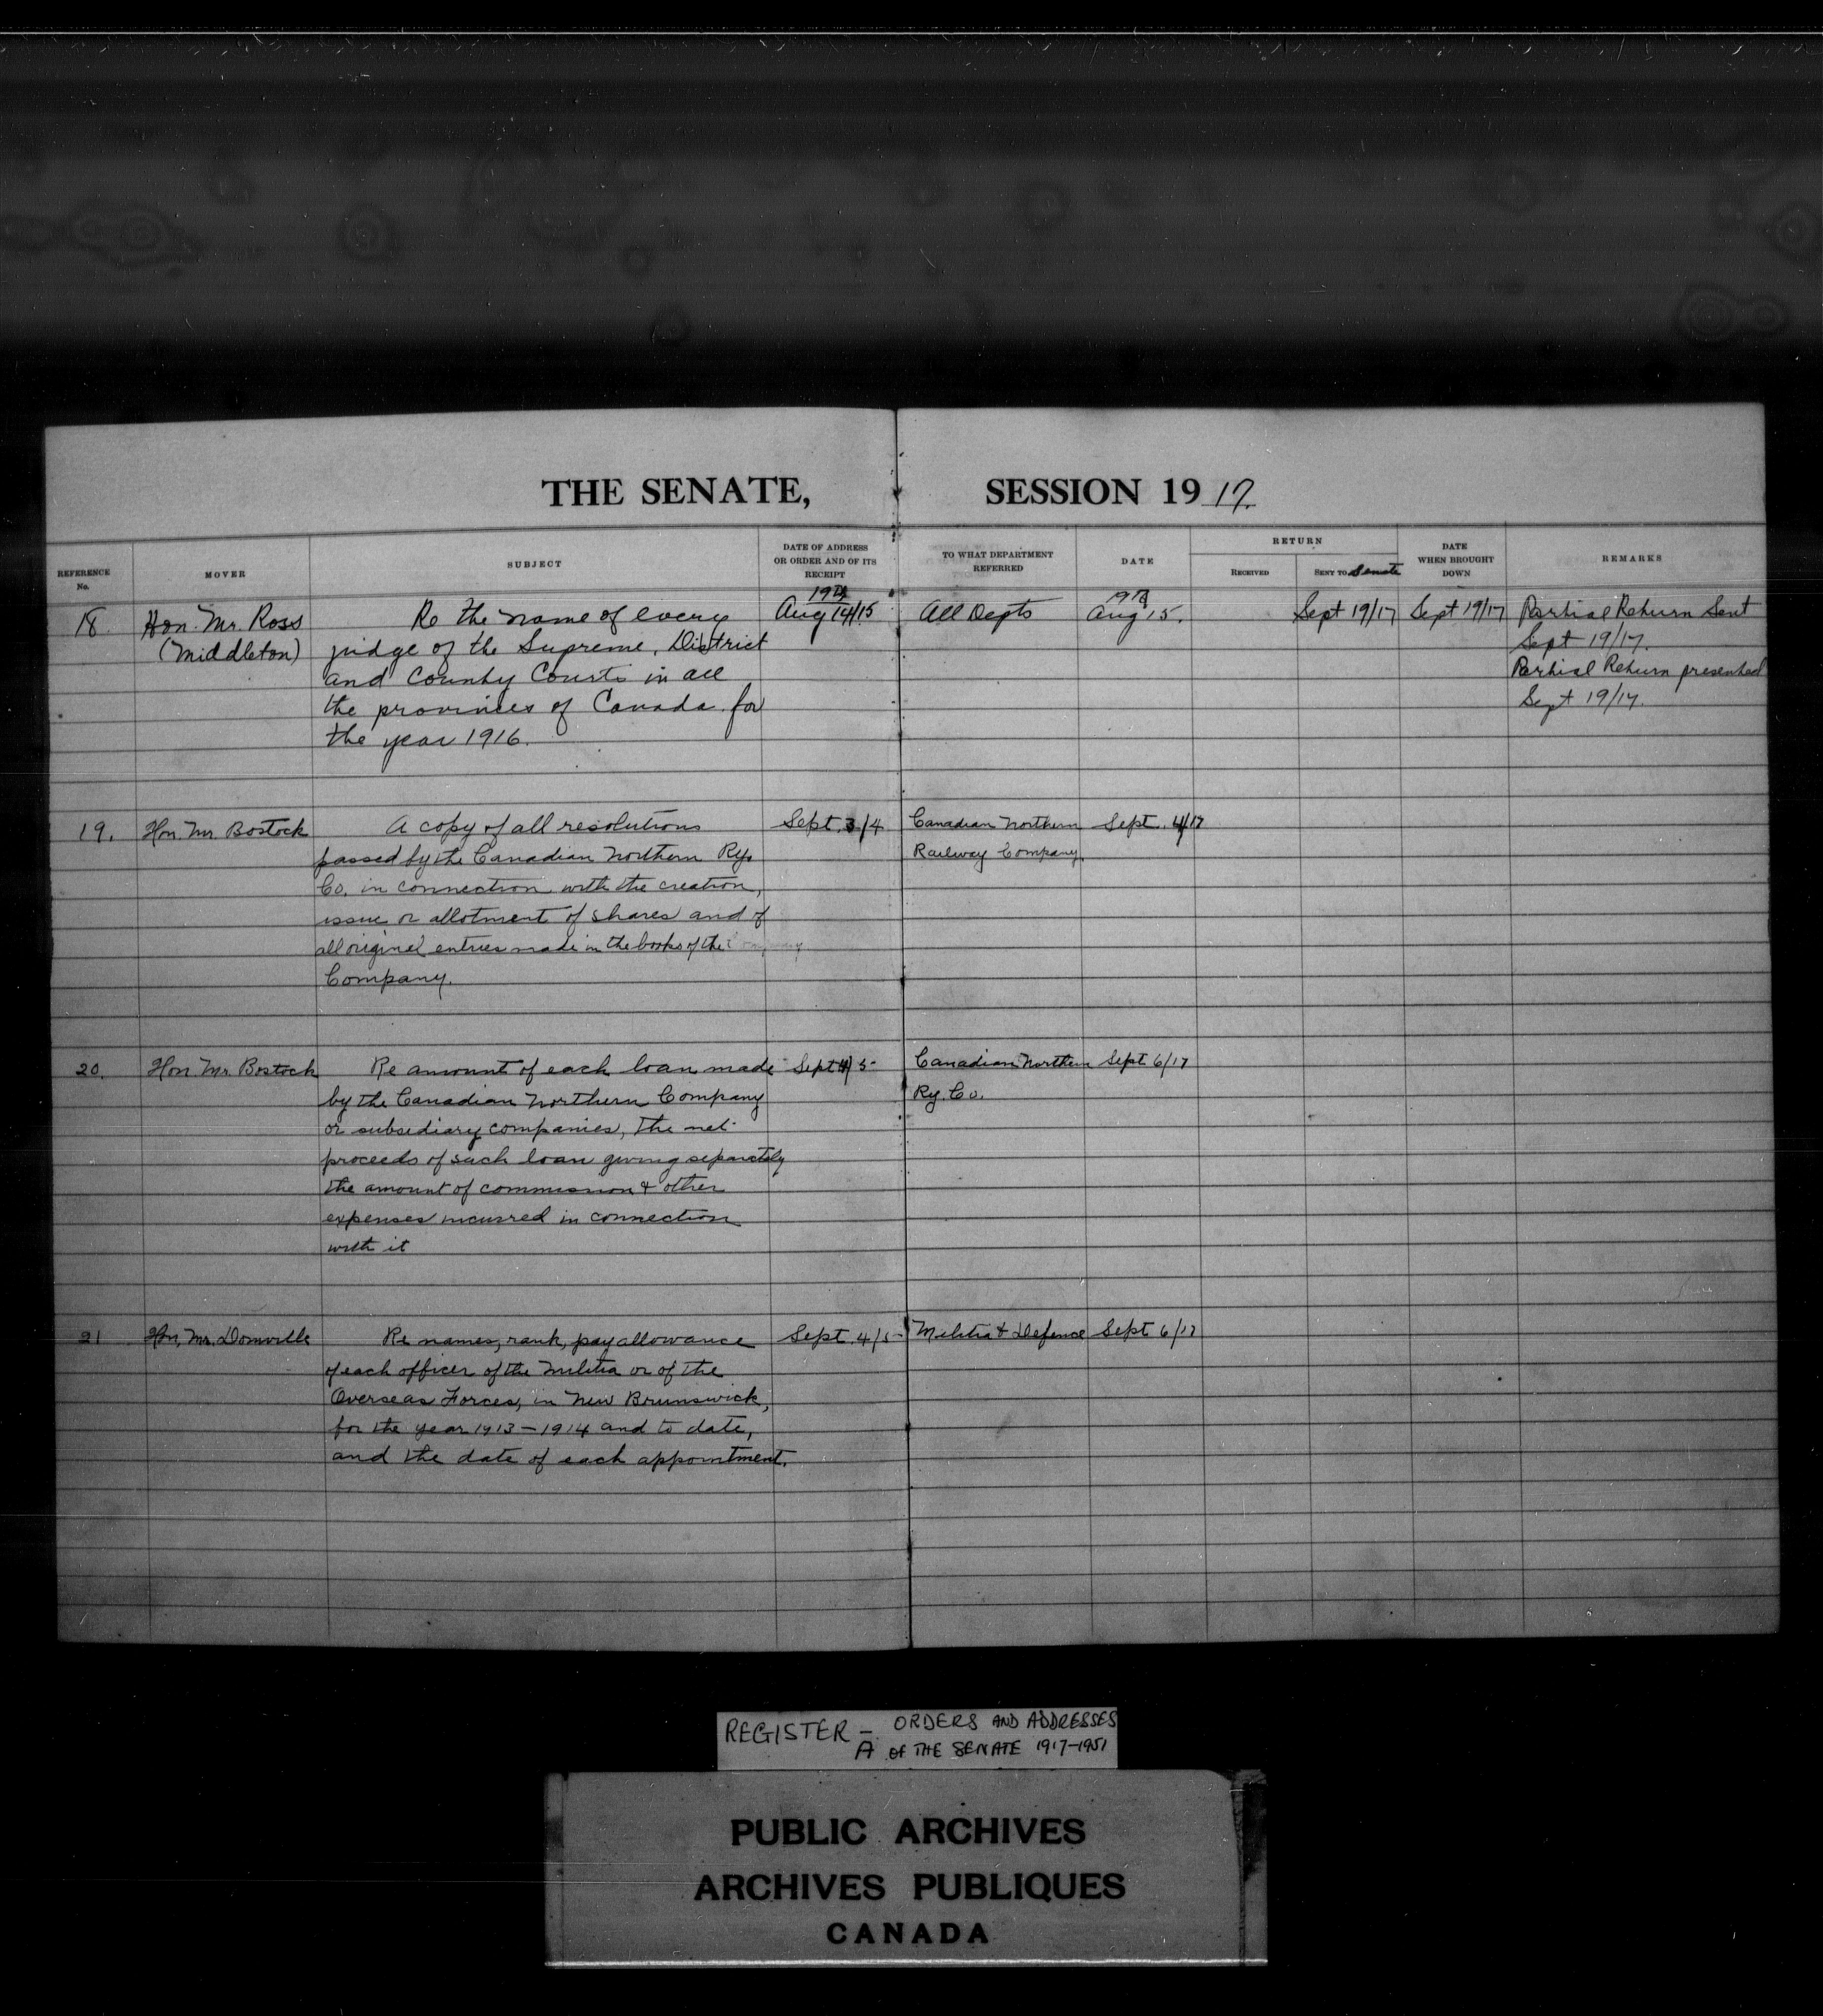 THE SENATE, SESSION 1917.
REFERENCE No.
MOVER
SUBJECT
DATE OF ADDRESS OR ORDER AND OF ITS RECEIPT
TO WHAT DEPARTMENT REFERRED
DATE
RETURN
RECEIVED
SENT TO Senate
DATE WHEN BROUGHT DOWN
REMARKS
18. Hon. Mr. Ross
(Middleton)
Re the name of every
judge of the Supreme, District
and County Courts in all
the provinces of Canada for
the year 1916.
1917
Aug 14/15
All Depts
1917
Aug 15.
Sept 19/17
Sept 19/17
Partial Return Sent
Sept 19/17.
Partial Return presented
Sept 19/17.
19. Hon. Mr. Bostock
A copy of all resolutions
passed by the Canadian Northern Ry.
Co. in connection with the creation,
issue or allotment of shares and of
all original entries made in the books of the
Company.
Sept. 3/4
Canadian Northern
Railway Company.
Sept. 4/17
20. Hon. Mr. Bostock
Re amount of each loan made
by the Canadian Northern Company
or subsidiary companies, the net
proceeds of such loan giving separately
the amount of commission & other
expenses incurred in connection
with it
Sept 4/5
Canadian Northern
Ry. Co.
Sept 6/17
21 Hon. Mr. Domville
Re names, rank, pay allowance
of each officer of the Militia or of the
Overseas Forces, in New Brunswick,
for the year 1913-1914 and to date,
and the date of each appointment.
Sept. 4/5
Militia & Defence
Sept 6/17
REGISTER - ORDERS AND ADDRESSES
A OF THE SENATE 1917-1951
PUBLIC ARCHIVES
ARCHIVES PUBLIQUES
CANADA